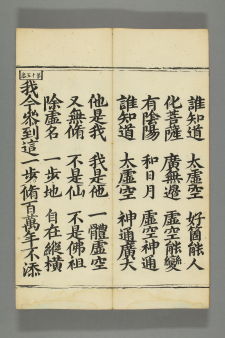 誰知道 太虛空 好箇能人
化菩薩 廣無邊 虛空能變
有陰陽 和日月 虛空神通
誰知道 太虛空 神通廣大
他是我 我是他 一體虛空
又無脩 不是仙 不是佛祖
除虛名 一步地 自在縱橫
我今來到這一步脩百萬年不添